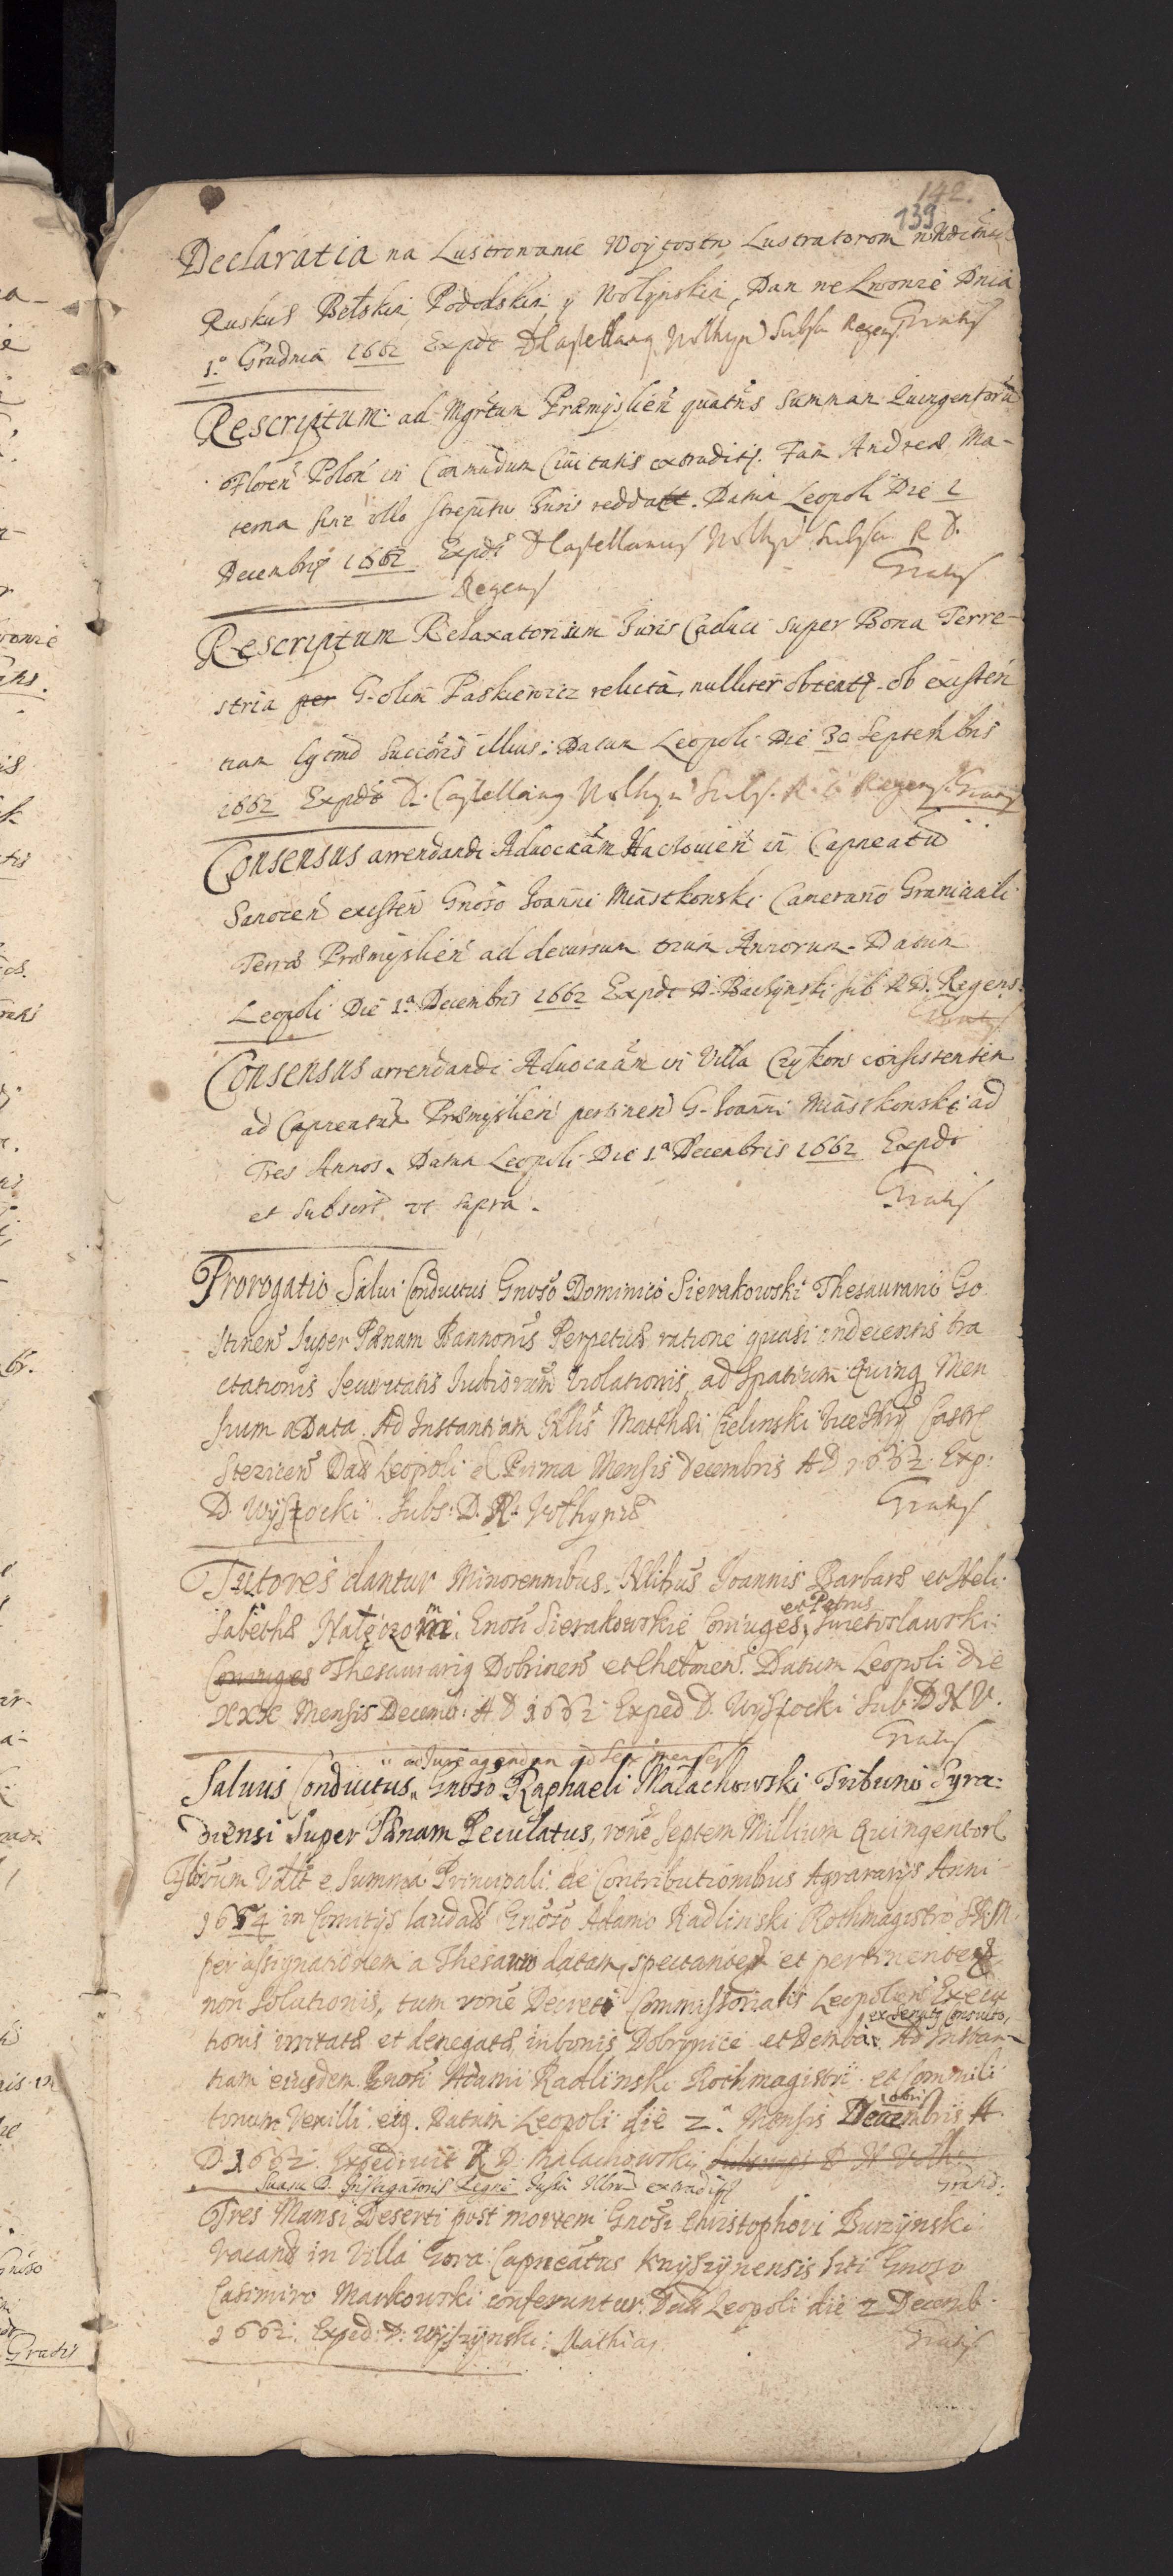 142.
139
Declaratia na Lustrowanie Woytostw Lustratorom
Ruskiey Bełskiey Podolskiey y Wołynskiey, Dan we Lwowie Dnia
1.° Grudnia 1662 Expdt D Castellanus Volhyn Subscr Regens Gratis
Rescriptum ad Mgrtum Præmyslien quatns Summam Quingentoru
Floren Polon in Commodum Ciuitatis extradity. Fam Andreæ Ma-
terna sine ullo strepitu Iuris reddat. Datum Leopoli Die 2
Decembris 1662 Expdt D Castellanus Volhyn Subscr. R D.
Regens Gratis
Rescriptum Relaxatorium Iuris Caduci super Bona Terre-
stria per G. olim Paskiewicz relicta, nulliter obtenty. ob existen
tiam lgtmi Succoris illius. Datum Leopoli Die 30 Septembris
1662 Expdt D. Castellanus Volhyn Subs. R. D. Regens. Gratis
Consensus arrendandi Aduocatam Haczouien in Capneatu
Sanocen existen Gnoso Ioanni Miastkowski Camerario Granicali
Terræ Præmyslien ad decursum trium Annorum. Datum
Leopoli Die 1.a Decembris 1662 Expdt D. Baczynski sub R D. Regens.
Gratis
Consensus arrendandi Aduocaam in Villa Czyżkow consistentem
ad Capneatum Præmyslien pertinen G. Ioanni Miastkowski ad
Tres Annos. Datum Leopoli Die 1.a Decembris 1662 Expdt
et Subscrit vt supra. Gratis
Prorogatio Salui Conductus Gnoso Dominico Sierakowski Thesaurario Go
stinen Super Pænam Bannonis Perpetuæ ratione quasi indecentis tra
ctationis Securitatis Iudiciorum Violationis, ad Spatium Quinq Men
sium a Data. Ad Instantiam Gllis Matthæi Czelinski Castr
Stezicen Dat Leopoli d Prima Mensis Decembris AD 1662. Exp:
D. Wyszocki. Subs: D. R. Volhyniæ Gratis
Tutores dantur Minorennibus. Nlibus Ioannis Barbaræ et Heli-
sabethæ Nałęczowie, Gnosi Sierakowskie Coniuges,
et Petrus
Swietosławski
Coniuges Thesaurarig Dobrinen et Chełmen. Datum Leopoli die
XXX Mensis Decemb: A. D 1662 Exped D. Wyszocki Sub. D N V.
Gratis
ad Iure agendum ad Sex menses
Saluus Conductus, Gnoso Raphaeli Małachowski Tribuno Syra:
diensi Super Pænam Peculatus, rone Septem Millium Quingentor
Florum Vltt e Summa Principali de Contributionibus Agrararijs Anni
1654 in Comitijs laudats Gnoso Adamo Radlinski Rothmagistro S.R.M.
per assignationem a Thesauro datam, spectantes et pertinentes
non Solutionis, tum rone Decreti Commissorialis Leopolien Execu
ex Senatq Consulto,
tionis irritatæ et denegatæ in bonis Dobrynice et Demba. Ad Instan-
tiam eiusdem Gnosi Adami Radlinski Rothmagistri et Commili
tonum Vexilli eig. Datum Leopoli die 2.a Mensis Decembris A.
obris
D. 1662. Expediuit R D. Małachowski,
Suasu D. Instigatoris Regni Iussu Illrmi extraditt Gratis.
Tres Mansi Deserti post mortem Gnosi Christophori Burzynski
Vacants in Villa Gora Capneatus Knyszynensis siti Gnoso
Casimiro Markowski conferuntur. Datt Leopoli die 2 Decemb.
1662. Exped: D: Wyszynski: Mathias Gratis